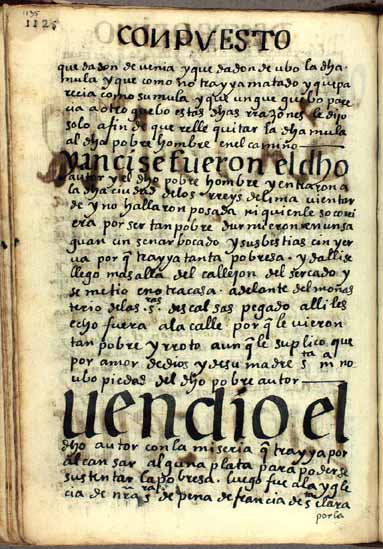 1135
1125
CONPVESTO
que dadon de uenia y que dadon de ubo la dha
mula y que como no trayya matado y que pa
recia como su mula y que
solo afin de que relle quitar la dha mula
al dho pobre hombre en el camino
y anci se fueron el dho
autor y el dho pobre hombre y entraron a
la dha ciudad de los rreys de lima uientar
de y no hallaron posada ni quien le socorri
era por ser tan pobre durmieron en un sa
guan cin senar bocado y sus bestias cin yer
ua por q̃ trayya tanta pobresa. y dalli se
llego mas alla del callejon del sercado y
se metio en otra casa. adelante del monas
terio de las s.ras descalsas pegado alli les
echo fuera a la calle por q̃ le uieron
tan pobre y rroto aun q̃ le suplico que
por amor de dios y de su madre s.ta m.a no
ubo piedad del dho pobre autor
uendio el
dho autor con la miseria q̃ trayya por
alcansar alguna plata para poder se
sustentar la pobresa. luego fue a la ygle
cia de nra s.ra de pena de francia de s.ta clara
por la